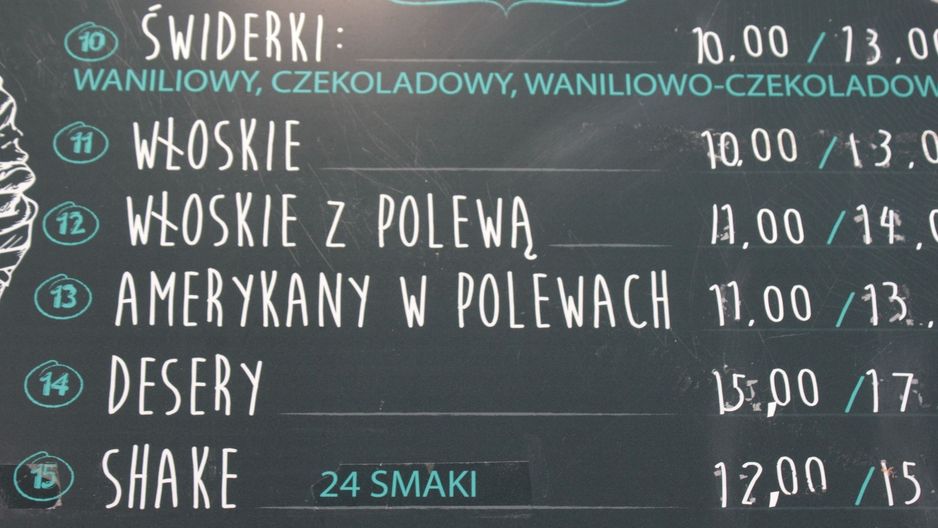 10 ŚWIDERKI: 10.00 / 13.00
WANILIOWY, CZEKOLADOWY, WANILIOWO-CZEKOLADOW
11 WŁOSKIE 10.00 / 13.0
12 WŁOSKIE Z POLEWĄ 11.00 / 14.0
13 AMERYKANY W POLEWACH 11.00 / 13.
14 DESERY 15,00 / 17
15 SHAKE 24 SMAKI 12,00 / 15